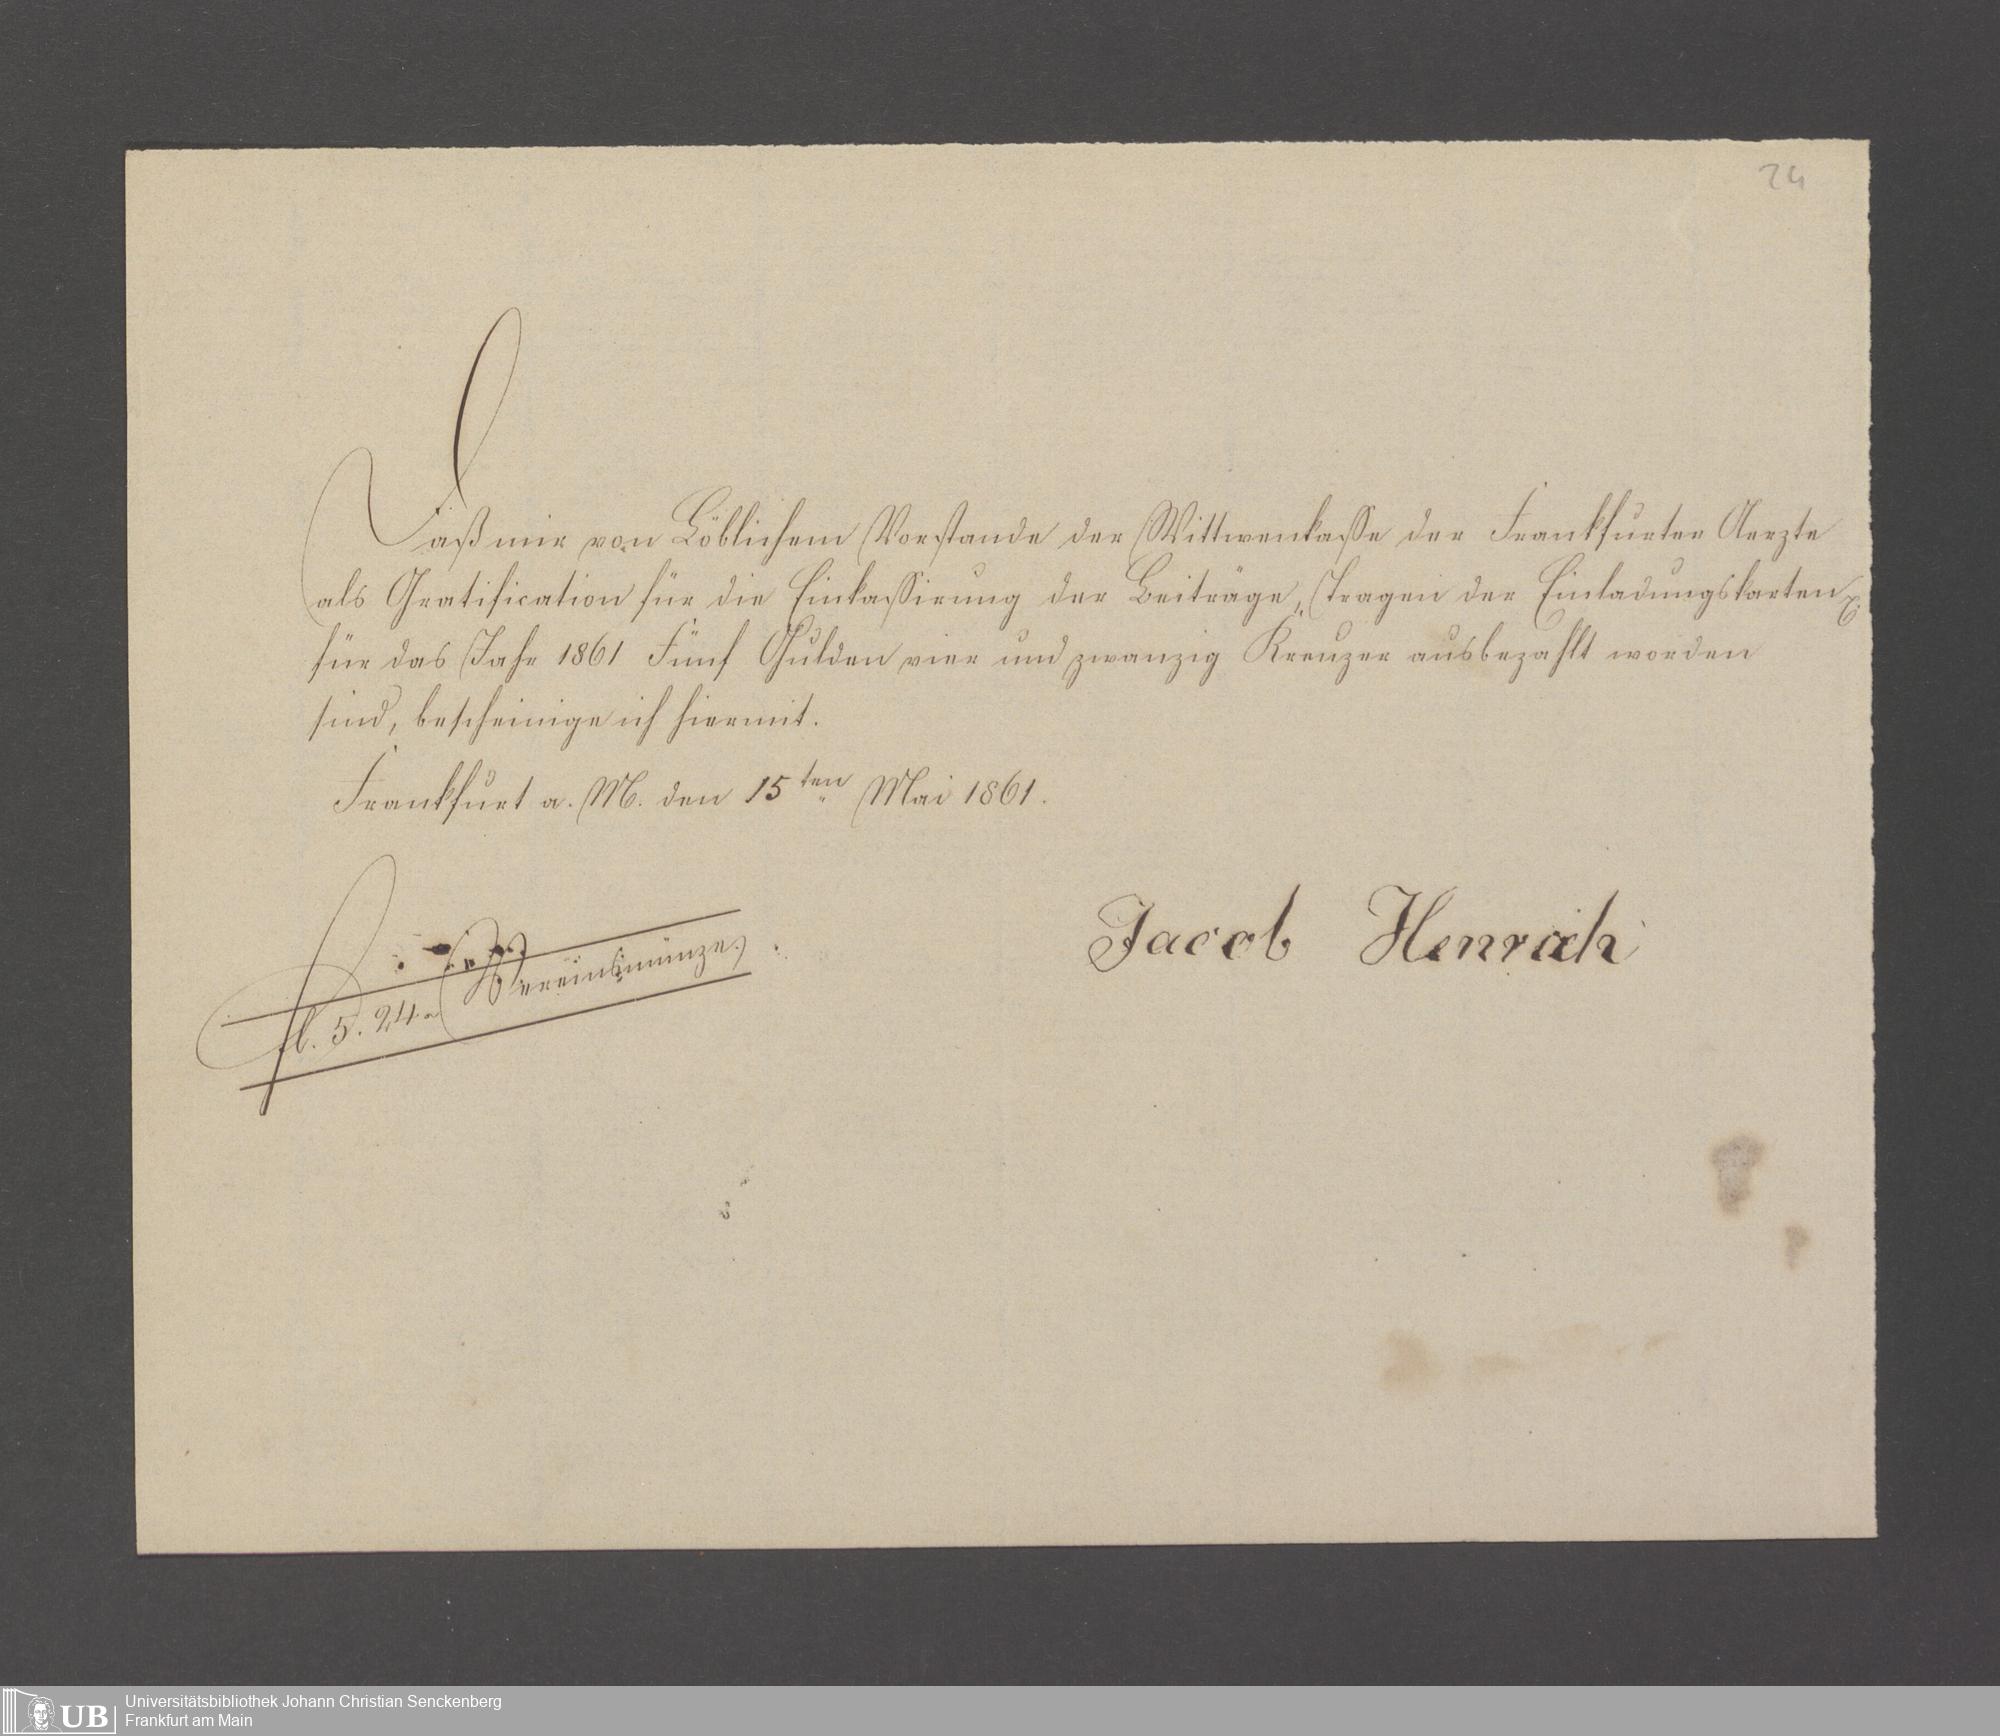 24
Daß mir von Löblichem Vorstande der Wittwenkasse der Frankfurter Aerzte
als Gratification für die Einkassirung der Beiträge, Tragen der Einladungskarten &
für das Jahr 1861 Fünf Gulden vier und zwanzig Kreuzer ausbezahlt worden
sind, bescheinige ich hiermit.
Frankfurt a. M. den 15ten Mai 1861.
fl. 5. 24 Vereinsmünze.
Jacob Henrich
UB
Universitätsbibliothek Johann Christian Senckenberg
Frankfurt am Main